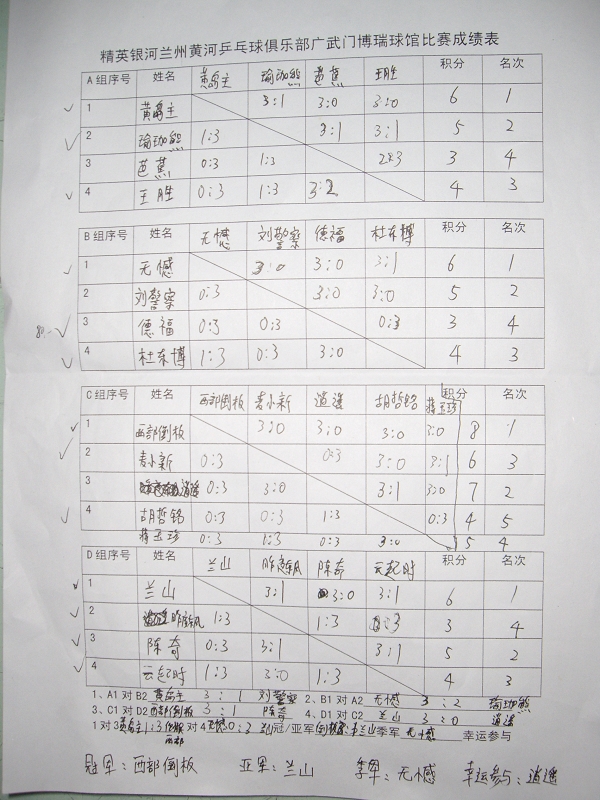 精英银河兰州黄河乒乓球俱乐部广武门博瑞球馆比赛成绩表
A组序号 姓名 黄岛主 瑜珈熊 芭蕉 王胜 积分 名次
1 黄岛主 3:1 3:0 3:0 6 1
2 瑜珈熊 1:3 3:1 3:1 5 2
3 芭蕉 0:3 1:3 2:3 3 4
4 王胜 0:3 1:3 3:2 4 3
B组序号 姓名 无憾 刘警察 德福 杜东博 积分 名次
1 无憾 3:0 3:0 3:1 6 1
2 刘警察 0:3 3:0 3:0 5 2
3 德福 0:3 0:3 0:3 3 4
4 杜东博 1:3 0:3 3:0 4 3
C组序号 姓名 西部倒板 麦小新 逍遥 胡哲铭 蒋玉珍 积分 名次
1 西部倒板 3:0 3:0 3:0 3:0 8 1
2 麦小新 0:3 0:3 3:0 3:1 6 3
3 逍遥 0:3 3:0 3:1 3:0 7 2
4 胡哲铭 0:3 0:3 1:3 0:3 4 5
蒋玉珍 0:3 1:3 0:3 3:0 5 4
D组序号 姓名 兰山 昨夜乘风 陈奇 云起时 积分 名次
1 兰山 3:1 3:0 3:1 6 1
2 1:3 1:3 3 4
3 陈奇 0:3 3:1 3:1 5 2
4 云起时 1:3 3:0 1:3 4 3
1、A1对B2 黄岛主 3:1 刘警察 2、B1对A2 无憾 3:2 瑜珈熊
3、C1对D2 西部倒板 3:1 陈奇 4、D1对C2 兰山 3:0 逍遥
1对3 黄岛主 1:3 西部倒板 对4 无憾 0:3 兰山 冠/亚军 兰山 季军 无憾 幸运参与
冠军:西部倒板 亚军:兰山 季军:无憾 幸运参与:逍遥